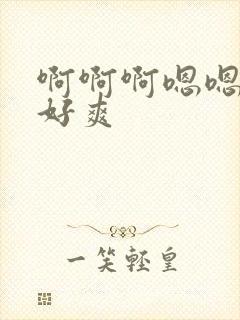 啊啊啊嗯嗯
好爽
一笑轻皇